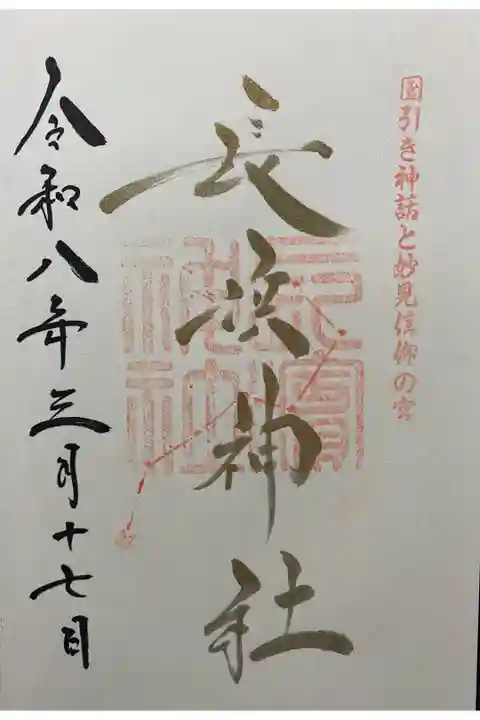 圀引き神話と妙見信仰の宮
長浜神社
令和八年三月十七日